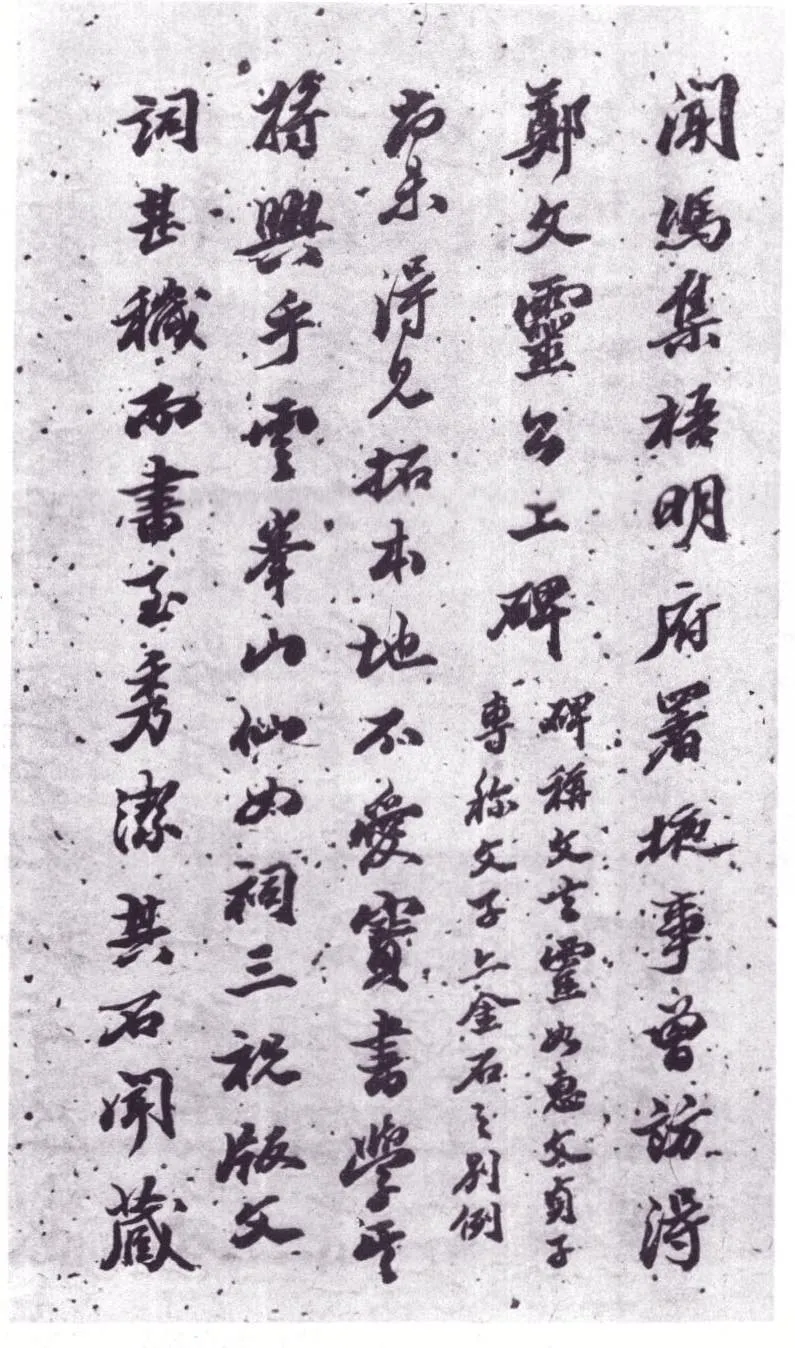 聞馮集梧明府署掖事曾訪得
鄭文靈公上碑
碑稱文不言靈如惠文貞子
專称文子亦金石之別例
尚未得見拓本地不愛寶書學其
將興乎雲峯山仙如祠三祝版文
詞甚穢而書至秀潔其石聞藏